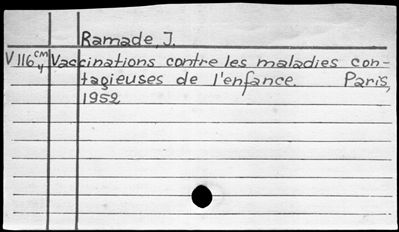 Ramade, J.
V 116 cm/4 Vaccinations contre les maladies con-
tagieuses de l'enfance. Paris,
1952